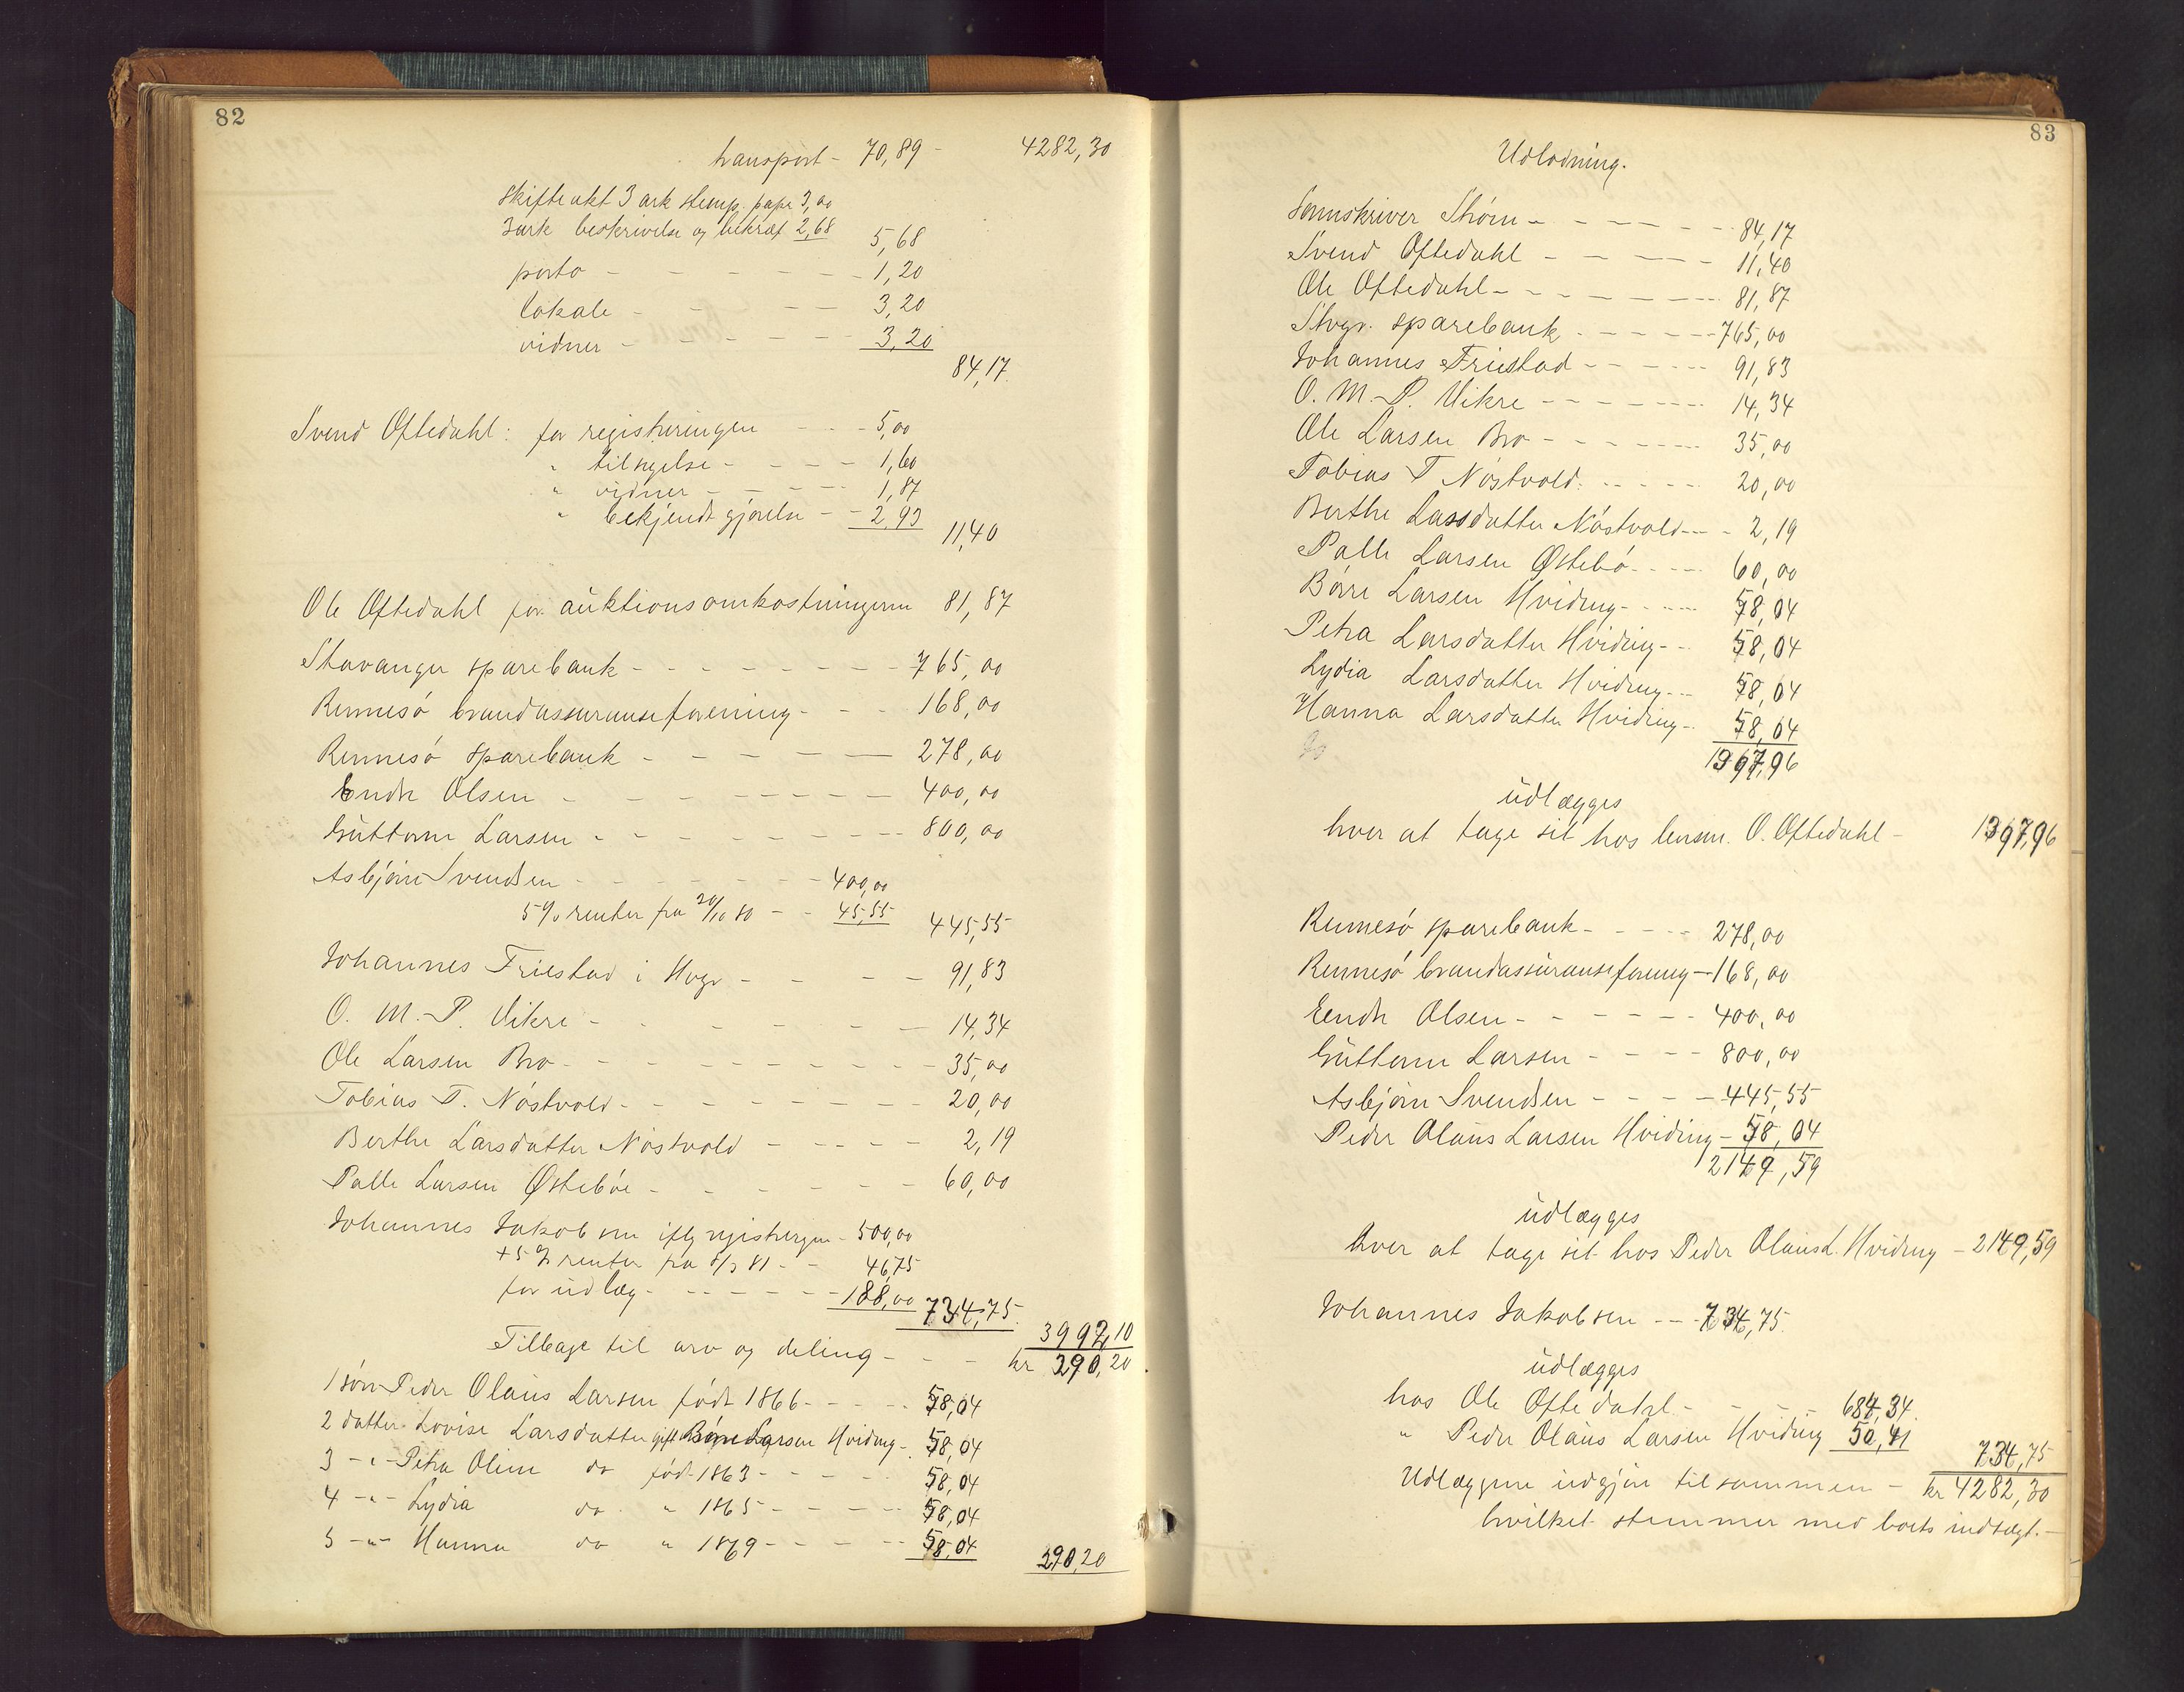 82
transport - 70,89 - 4282,30
Skifteakt 3 ark stemp. papr 3,00
3 ark beskrivelse og bekræf 2,68 5,68
porto - - - - - - 1,20
lokale - - - - 3,20
vidner - - - - - - 3,20
84,17
Svend Oftedahl: for registreringen - - - 5,00
" tilsigelse - - - - - 1,60
" vidner - - - - - 1,87
" bekjendtgjørelse - - 2,93
11,40
Ole Oftedahl for auktionsomkostningerne 81,87
Stavanger sparebank - - - - - - - 765,00
Rennesö brandassuranseforening - - - 168,00
Rennesö sparebank - - - - - 278,00
Endre Olsen - - - - - - - - 400,00
Guttorm Larsen - - - - - - - - 800,00
Asbjörn Svendsen - - - - - - 400,00
5% renter fra 20/10 80 - - 45,55 445,55
Johannes Friestad i Hvgr - - - - 91,83
O. M. P. Vikre - - - - - - - 14,34
Ole Larsen Bro - - - - - - - - 35,00
Tobias T. Nöstvold - - - - - - - 20,00
Berthe Larsdatter Nöstvold - - - - - 2,19
Palle Larsen Østeböe - - - - - - 60,00
Johannes Jakobsen iflg registreringen - 500,00
+ 5% renter fra 8/3 81 - - 46,75
for udlæg - - - - - - 188,00 734,75
3992,10
Tilbage til arv og deling - - - kr 290,20
1 søn Peder Olaus Larsen født 1866 - - - - 58,04
2 datter Lovise Larsdatter gift Börre Larsen Hviding - 58,04
3 - " - Petra Oline do født 1863 - - - - 58,04
4 - " - Lydia do " 1865 - - - - - 58,04
5 - " - Hanna do " 1869 - - - - - 58,04
290,20
83
Udlodning.
Sornskriver Strøm - - - - - - - 84,17
Svend Oftedahl - - - - - - 11,40
Ole Oftedahl - - - - - - - - 81,87
Stvgr. sparebank - - - - - 765,00
Johannes Friestad - - - - - - 91,83
O. M. P. Vikre - - - - - - - 14,34
Ole Larsen Bro - - - - - - - 35,00
Tobias T Nöstvold - - - - - 20,00
Berthe Larsdatter Nöstvold - - - 2,19
Palle Larsen Østebö - - - - 60,00
Börre Larsen Hviding - - - - - 58,04
Petra Larsdatter Hviding - - 58,04
Lydia Larsdatter Hviding - - - 58,04
Hanna Larsdatter Hviding - - 58,04
1397,96
udlægges
hver at tage sit hos lensm. O. Oftedahl - 1397,96
Rennesö sparebank - - - - - 278,00
Rennesö brandassuranseforening - 168,00
Endre Olsen - - - - - - 400,00
Guttorm Larsen - - - - 800,00
Asbjörn Svendsen - - - - 445,55
Peder Olaus Larsen Hviding - 58,04
2149,59
udlægges
hver at tage sit hos Peder Olaus L. Hviding - 2149,59
Johannes Jakobsen - - - 734,75
udlægges
hos Ole Oftedahl - - - - 684,34
" Peder Olaus Larsen Hviding 50,41
734,75
Udlæggene udgjør tilsammen - kr 4282,30
hvilket stemmer med boets indtægt. -